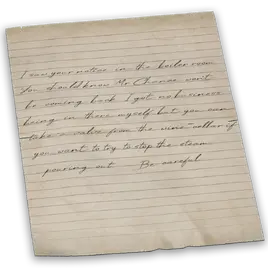 I saw your notice in the boiler room
You should know Mr Chance won't
be coming back I got no business
being in there myself but you can
take a valve from the wine cellar if
you want to try to stop the steam
pouring out Be careful